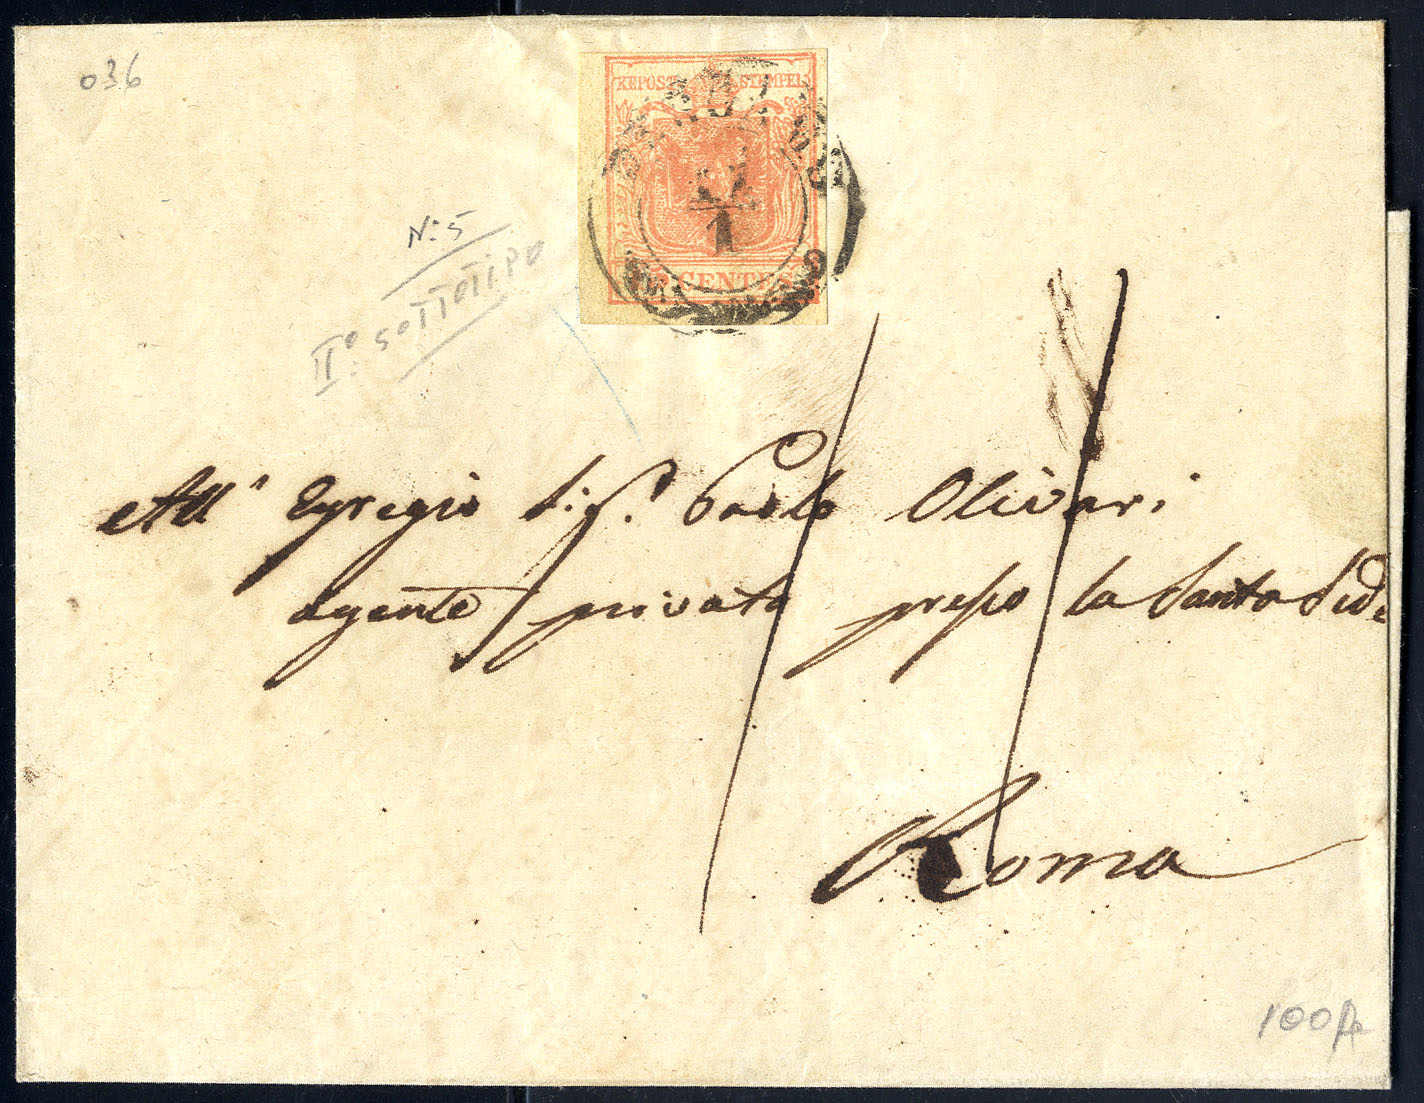 036
KKPOST STEMPEL
1
CENTES
N: 5
II° SOTTOTIPO
All' Egregio Sig.r Paolo Olivari
agente privato presso la Santa Sede
Roma
100